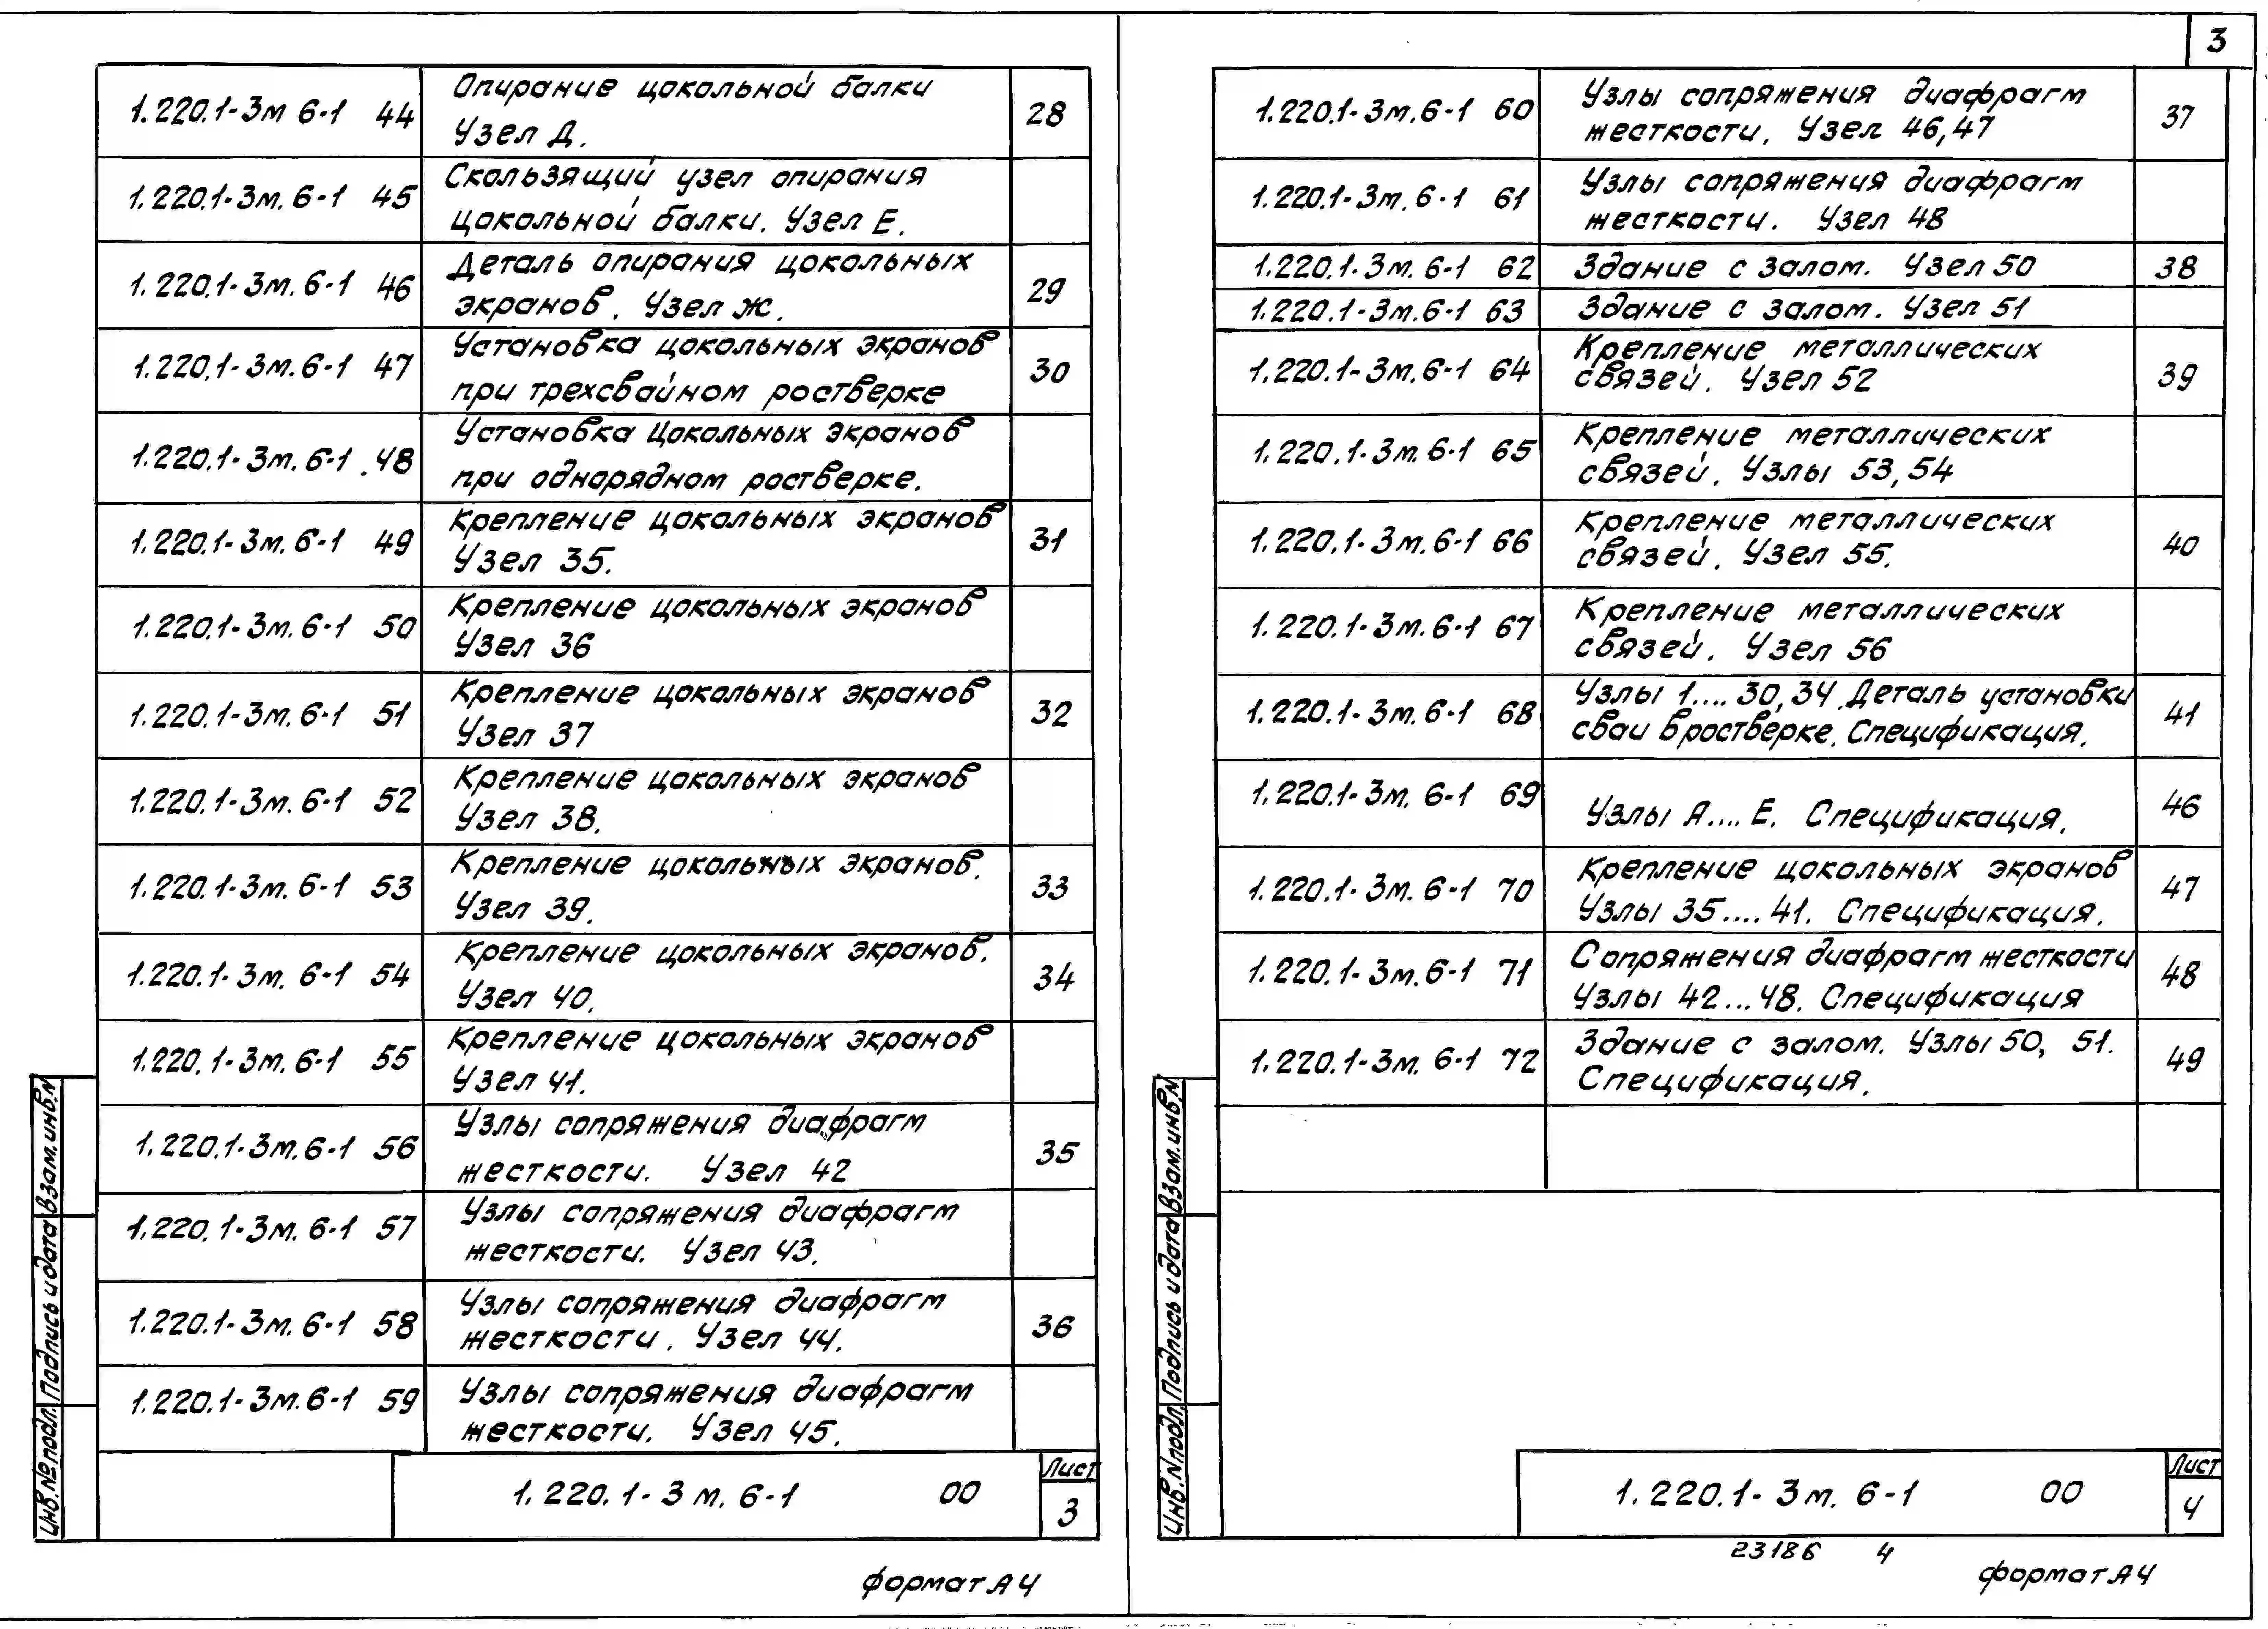 3
1.220.1-3м 6-1 44 Опирание цокольной балки 28
Узел Д.
1.220.1-3м. 6-1 45 Скользящий узел опирания
цокольной балки. Узел Е.
1.220.1-3м. 6-1 46 Деталь опирания цокольных 29
экранов. Узел Ж.
1.220.1-3м. 6-1 47 Установка цокольных экранов 30
при трехсвайном ростверке
1.220.1-3м. 6-1 .48 Установка цокольных экранов
при однорядном ростверке.
1.220.1-3м. 6-1 49 Крепление цокольных экранов 31
Узел 35.
1.220.1-3м. 6-1 50 Крепление цокольных экранов
Узел 36
1.220.1-3м. 6-1 51 Крепление цокольных экранов 32
Узел 37
1.220.1-3м. 6-1 52 Крепление цокольных экранов
Узел 38.
1.220.1-3м. 6-1 53 Крепление цокольных экранов. 33
Узел 39.
1.220.1-3м. 6-1 54 Крепление цокольных экранов. 34
Узел 40.
1.220.1-3м. 6-1 55 Крепление цокольных экранов
Узел 41.
1.220.1-3м. 6-1 56 Узлы сопряжения диафрагм 35
жесткости. Узел 42
1.220.1-3м. 6-1 57 Узлы сопряжения диафрагм
жесткости. Узел 43.
1.220.1-3м. 6-1 58 Узлы сопряжения диафрагм 36
жесткости. Узел 44.
1.220.1-3м. 6-1 59 Узлы сопряжения диафрагм
жесткости. Узел 45.
1.220.1-3м. 6-1 00
Лист
3
Инв.№подл. Подпись и дата Взам.инв.N
формат А4
1.220.1-3м. 6-1 60 Узлы сопряжения диафрагм 37
жесткости. Узел 46,47
1.220.1-3м. 6-1 61 Узлы сопряжения диафрагм
жесткости. Узел 48
1.220.1-3м. 6-1 62 Здание с залом. Узел 50 38
1.220.1-3м. 6-1 63 Здание с залом. Узел 51
1.220.1-3м. 6-1 64 Крепление металлических 39
связей. Узел 52
1.220.1-3м. 6-1 65 Крепление металлических
связей. Узлы 53,54
1.220.1-3м. 6-1 66 Крепление металлических 40
связей. Узел 55.
1.220.1-3м. 6-1 67 Крепление металлических
связей. Узел 56
1.220.1-3м. 6-1 68 Узлы 1.... 30,34. Деталь установки 41
сваи в ростверке. Спецификация.
1.220.1-3м. 6-1 69 Узлы А.... Е. Спецификация. 46
1.220.1-3м. 6-1 70 Крепление цокольных экранов 47
Узлы 35.... 41. Спецификация.
1.220.1-3м. 6-1 71 Сопряжения диафрагм жесткости 48
Узлы 42...48. Спецификация
1.220.1-3м. 6-1 72 Здание с залом. Узлы 50, 51. 49
Спецификация.
1.220.1-3м. 6-1 00
Лист
4
Инв.Nподл. Подпись и дата Взам.инв.N
23186 4
формат А4